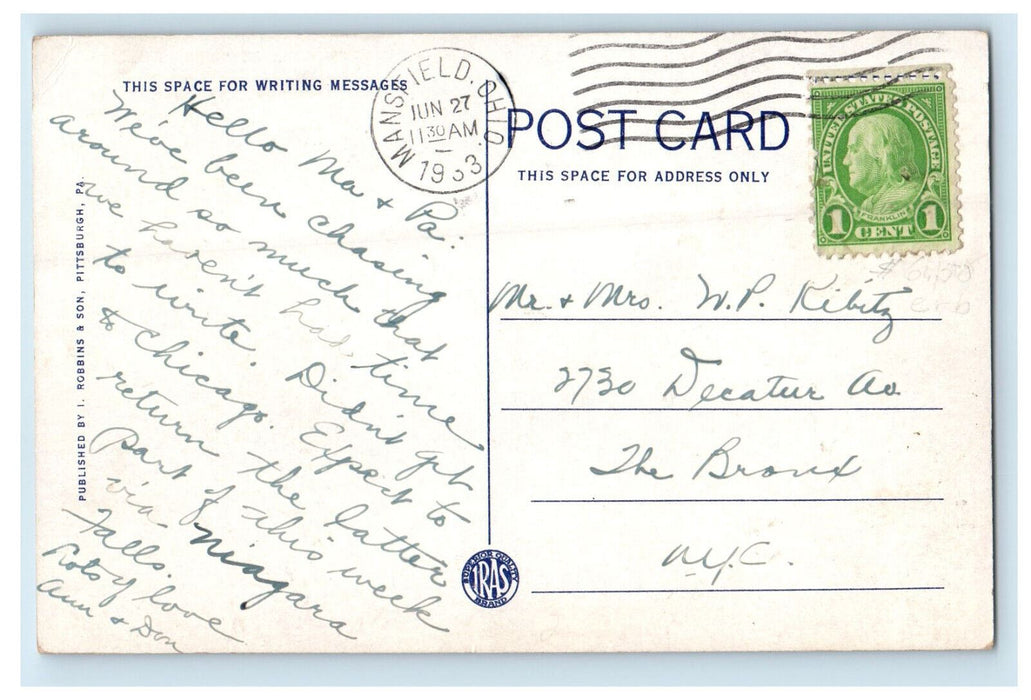 THIS SPACE FOR WRITING MESSAGES
Hello Ma & Pa:
We've been chasing
around so much that
we haven't had time
to write. Didn't get
to Chicago. Expect to
return the latter
part of this week
via Niagara
Falls.
Lots of love
Ann & Don
PUBLISHED BY I. ROBBINS & SON, PITTSBURGH, PA.
MANSFIELD, OHIO.
JUN 27
11 30 AM
1933
POST CARD
THIS SPACE FOR ADDRESS ONLY
UNITED STATES POSTAGE
FRANKLIN
1 CENT 1
Mr. & Mrs. W.P. Kibitz
2730 Decatur Av.
The Bronx
N.Y.C.
SUPERIOR QUALITY
IRAS
BRAND